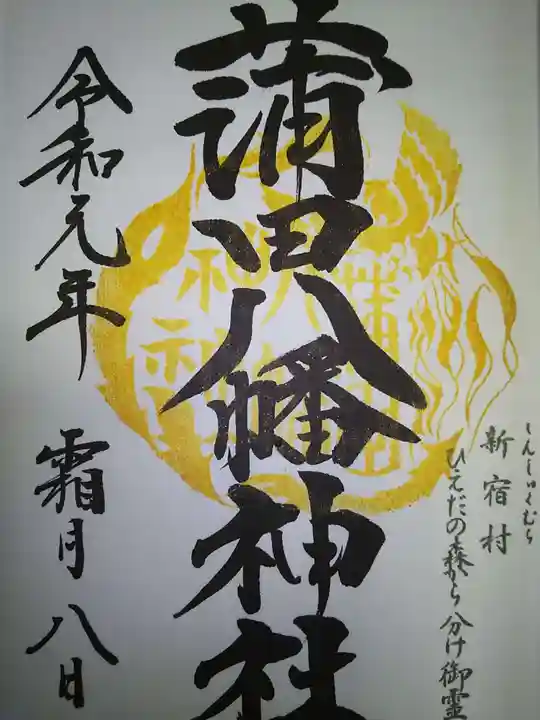 しんしゅくむら
新宿村
ひえだの森から分け御霊
蒲田八幡神社
令和元年 霜月 八日